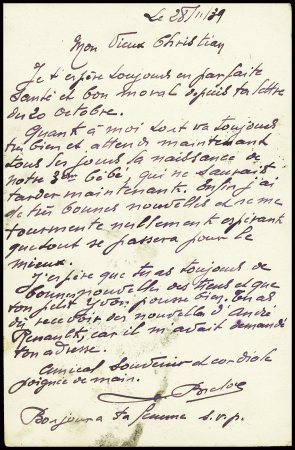 Le 28/11/39
Mon Vieux Christian
Je t'espère toujours en parfaite
santé et bon moral depuis ta lettre
du 20 octobre.
Quant à moi tout va toujours
très bien et attends maintenant
tous les jours la naissance de
notre 3ème bébé, qui ne saurait
tarder maintenant. Enfin j'ai
de très bonnes nouvelles et ne me
tourmente nullement espérant
que tout se passera pour le
mieux.
J'espère que tu as toujours de
bonnes nouvelles des tiens et que
ton petit Yvon pousse bien. Tu as
du recevoir des nouvelles d'André
Renault, car il m'avait demandé
ton adresse.
Amical souvenir et cordiale
poignée de main.
Bonjour à ta femme s.v.p.